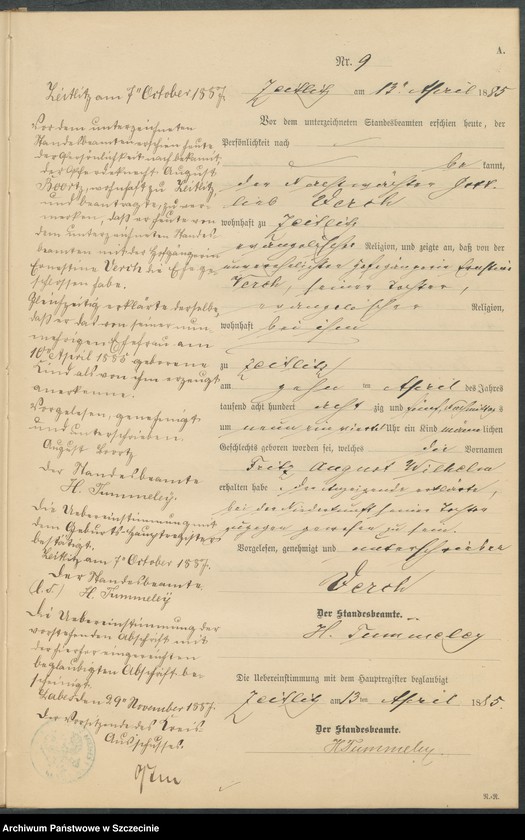 A.
Nr. 9
Zeitlitz am 13ten April 1885
Vor dem unterzeichneten Standesbeamten erschien heute, der
Persönlichkeit nach
be kannt,
der Nachtwächter Gott-
lieb Verch
wohnhaft zu Zeitlitz
evangelischer Religion, und zeigte an, daß von der
unverehelichten Hofgängerin Ernstine
Verch, seiner Tochter,
evangelischer Religion,
wohnhaft bei ihm
zu Zeitlitz
am zehn ten April des Jahres
tausend acht hundert acht zig und fünf Nachmittags
um neun ein viertel Uhr ein Kind männlichen
Geschlechts geboren worden sei, welches die Vornamen
Fritz August Wilhelm
erhalten habe. Der Anzeigende erklärte,
bei der Niederkunft seiner Tochter
zugegen gewesen zu sein.
Vorgelesen, genehmigt und unterschrieben
Verch
Der Standesbeamte.
H. Tummeley
Die Uebereinstimmung mit dem Hauptregister beglaubigt
Zeitlitz am 13ten April 1885.
Der Standesbeamte.
H. Tummeley.
R.-R.
Zeitlitz am 7n October 1887.
Vor dem unterzeichneten
Standesbeamten erschien heute
der Persönlichkeit nach bekannt,
der Pferdeknecht August
Boortz, wohnhaft zu Zeitlitz,
und beantragte, zu ver-
merken, daß er heute vor
dem unterzeichneten Standes
beamten mit der Hofgängerin
Ernestine Verch die Ehe ge-
schlossen habe.
Gleichzeitig erklärte derselbe,
daß er das von seiner nun
mehrigen Ehefrau am
10n April 1885 geborene
Kind als von ihm erzeugt
anerkenne.
Vorgelesen, genehmigt
und unterschrieben.
August Boortz.
Der Standesbeamte
H. Tummeley.
Die Uebereinstimmung mit
dem Geburts-Hauptregister
bestätigt.
Zeitlitz am 7n October 1887.
Der Standesbeamte.
(L.S.) H. Tummeley
Die Uebereinstimmung der
vorstehenden Abschrift mit
der hierher eingereichten
beglaubigten Abschrift be-
scheinigt.
Labes den 29n November 1887.
Der Vorsitzende des Kreis-
Ausschusses.
Archiwum Państwowe w Szczecinie